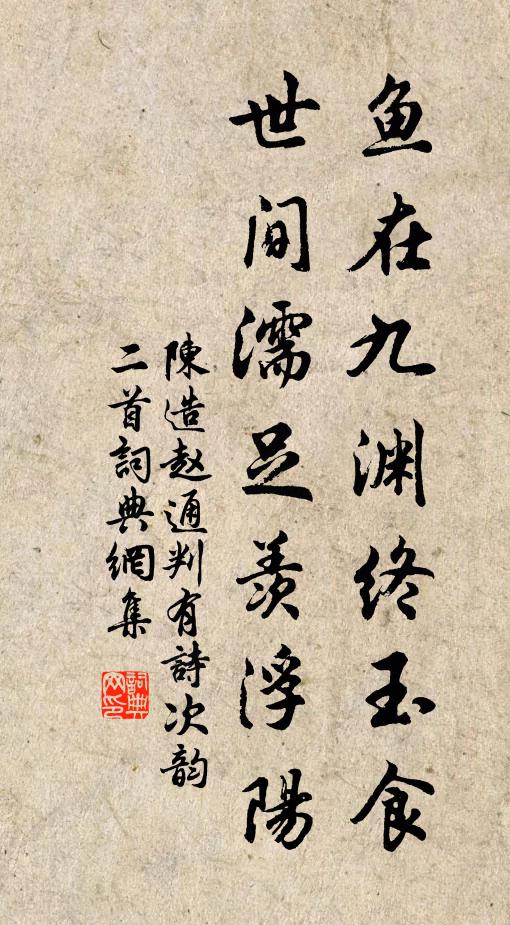 鱼在九渊终玉食
世间濡足羡浮陽
陳造赵通判有詩次韵
二首詞典網集
詞典
网印